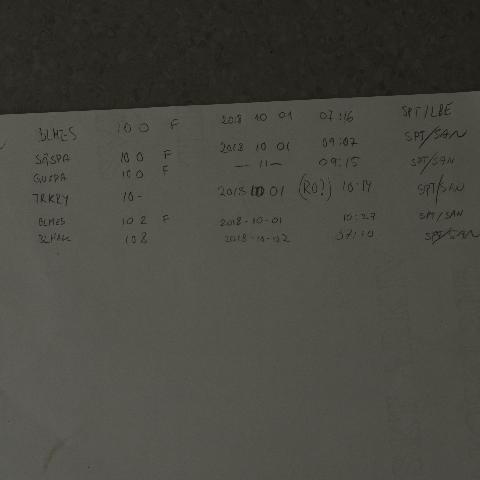 BLMES 100 F 2018 10 01 07:16 SPT/LBE
SÄSPA 100 F 2018 10 01 09:07 SPT/SAN
GUSPA 100 F — 11 — 09:15 SPT/SAN
TRKRY 10- 2018 10 01 (RO?) 10:14 SPT/SAN
BLMES 102 F 2018-10-01 10:27 SPT/SAN
108 2018-10-02 07:10 SPT/SAN